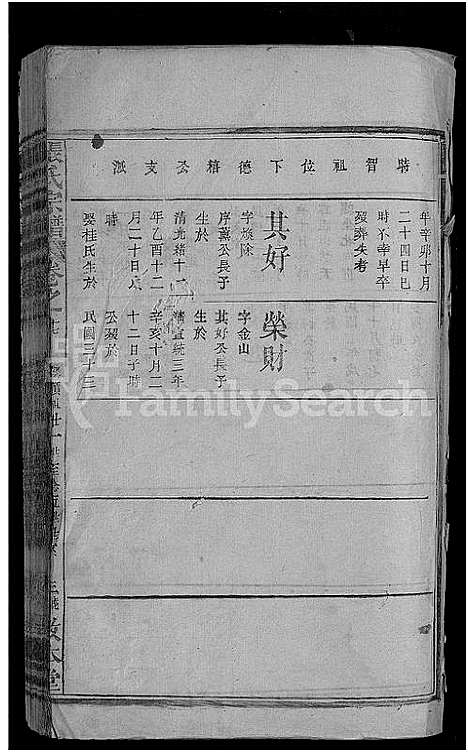 時智祖位下德精公支派
年辛卯十月
二十四日巳
時不幸早卒
歿葬失考
其好
字煥除
序薰公長子
生於
清光緒十一
年乙酉十二
月二十日
時
娶桂氏生於
榮財
字金山
其好公長子
生於
清宣統三年
辛亥十月二
十二日子時
公歿於
民國三十三
氏宗譜
FamilySearch